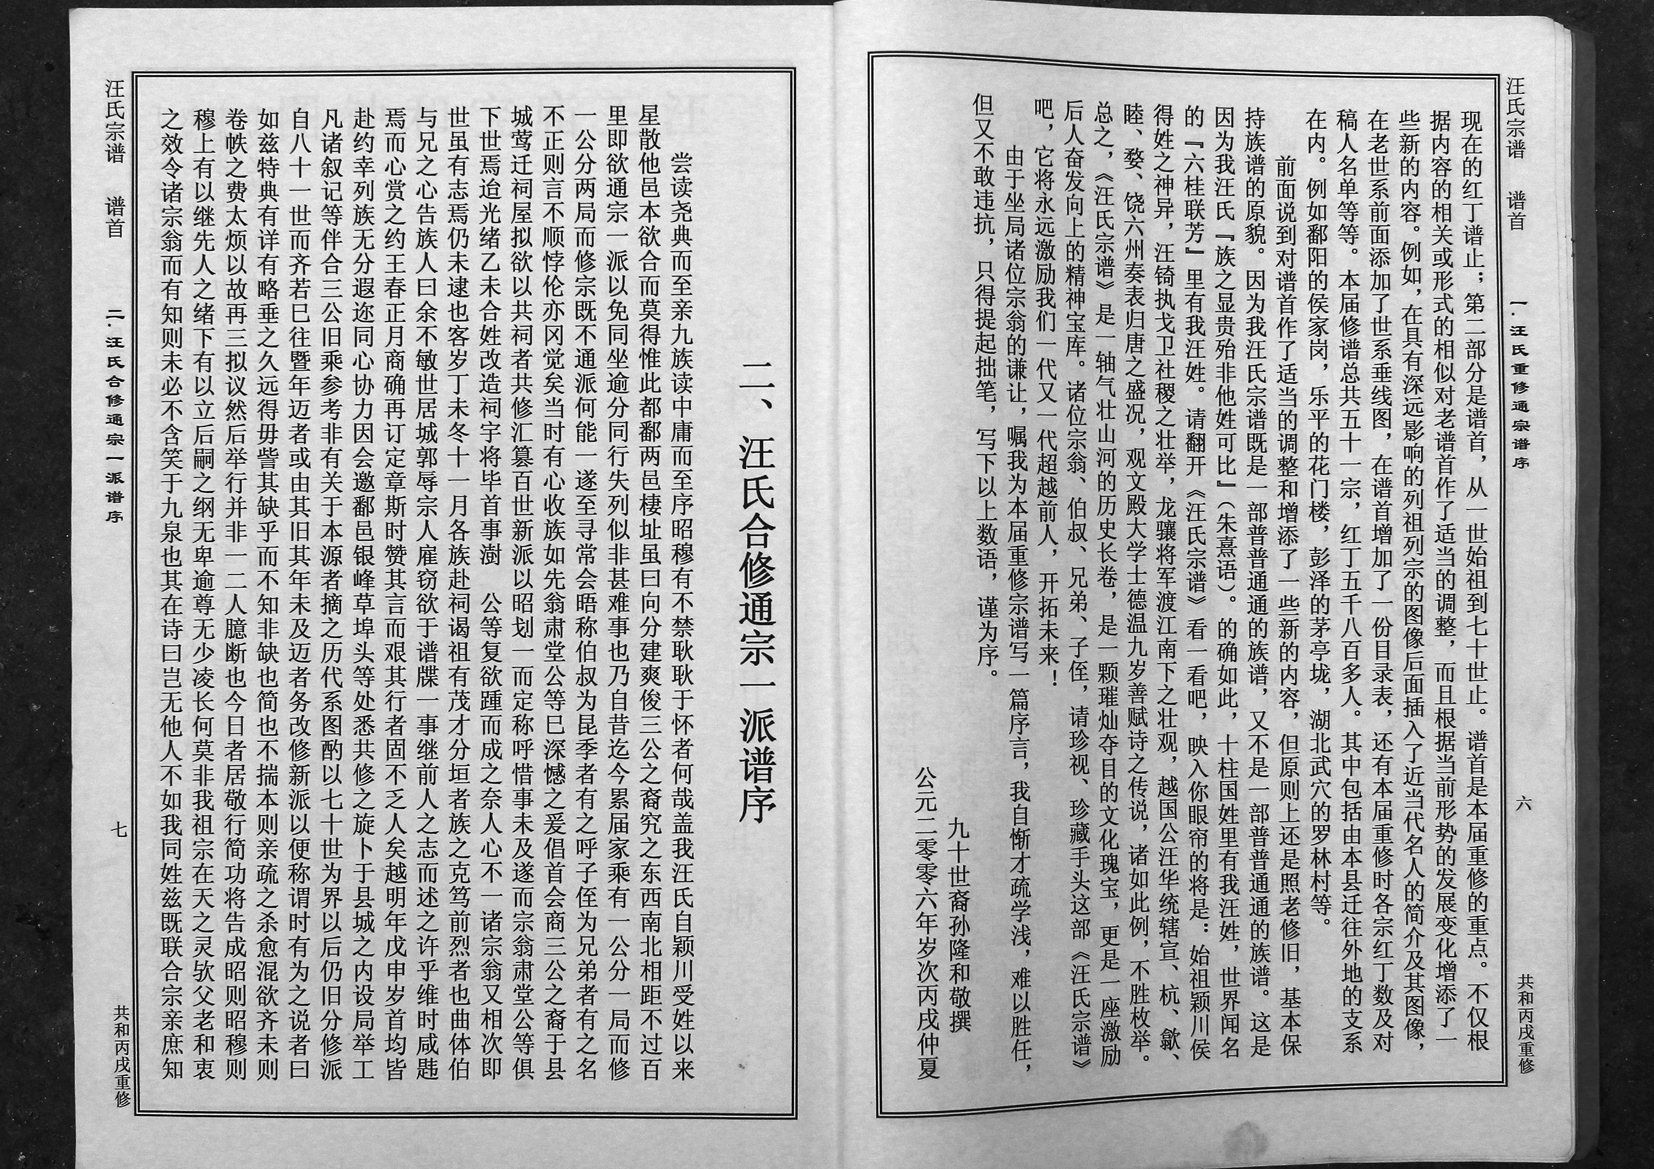 汪氏宗谱　谱首　一·汪氏重修通宗谱序　六　共和丙戌重修
现在的红丁谱止；第二部分是谱首，从一世始祖到七十世止。谱首是本届重修的重点。不仅根
据内容的相关或形式的相似对老谱首作了适当的调整，而且根据当前形势的发展变化增添了一
些新的内容。例如，在具有深远影响的列祖列宗的图像后面插入了近当代名人的简介及其图像，
在老世系前面添加了世系垂线图，在谱首增加了一份目录表，还有本届重修时各宗红丁数及对
稿人名单等等。本届修谱总共五十一宗，红丁五千八百多人。其中包括由本县迁往外地的支系
在内。例如鄱阳的侯家岗，乐平的花门楼，彭泽的茅亭垅，湖北武穴的罗林村等。
前面说到对谱首作了适当的调整和增添了一些新的内容，但原则上还是照老修旧，基本保
持族谱的原貌。因为我汪氏宗谱既是一部普普通通的族谱，又不是一部普普通通的族谱。这是
因为我汪氏『族之显贵殆非他姓可比』（朱熹语）。的确如此，十柱国姓里有我汪姓，世界闻名
的『六桂联芳』里有我汪姓。请翻开《汪氏宗谱》看一看吧，映入你眼帘的将是：始祖颖川侯
得姓之神异，汪锜执戈卫社稷之壮举，龙骧将军渡江南下之壮观，越国公汪华统辖宣、杭、歙、
睦、婺、饶六州奏表归唐之盛况，观文殿大学士德温九岁善赋诗之传说，诸如此例，不胜枚举。
总之，《汪氏宗谱》是一轴气壮山河的历史长卷，是一颗璀灿夺目的文化瑰宝，更是一座激励
后人奋发向上的精神宝库。诸位宗翁、伯叔、兄弟、子侄，请珍视、珍藏手头这部《汪氏宗谱》
吧，它将永远激励我们一代又一代超越前人，开拓未来！
由于坐局诸位宗翁的谦让，嘱我为本届重修宗谱写一篇序言，我自惭才疏学浅，难以胜任，
但又不敢违抗，只得提起拙笔，写下以上数语，谨为序。
九十世裔孙隆和敬撰
公元二零零六年岁次丙戌仲夏
二、汪氏合修通宗一派谱序
尝读尧典而至亲九族读中庸而至序昭穆有不禁耿耿于怀者何哉盖我汪氏自颖川受姓以来
星散他邑本欲合而莫得惟此都鄱两邑棲址虽曰向分建爽俊三公之裔究之东西南北相距不过百
里即欲通宗一派以免同坐逾分同行失列似非甚难事也乃自昔迄今累届家乘有一公分一局而修
一公分两局而修宗既不通派何能一遂至寻常会晤称伯叔为昆季者有之呼子侄为兄弟者有之名
不正则言不顺悖伦亦冈觉矣当时有心收族如先翁肃堂公等巳深憾之爰倡首会商三公之裔于县
城莺迁祠屋拟欲以共祠者共修汇篡百世新派以昭划一而定称呼惜事未及遂而宗翁肃堂公等俱
下世焉迨光绪乙未合姓改造祠宇将毕首事澍　公等复欲踵而成之奈人心不一诸宗翁又相次即
世虽有志焉仍未逮也客岁丁未冬十一月各族赴祠谒祖有茂才分垣者族之克笃前烈者也曲体伯
与兄之心告族人曰余不敏世居城郭辱宗人雇窃欲于谱牒一事继前人之志而述之许乎维时咸韪
焉而心赏之约王春正月商确再订定章斯时赞其言而艰其行者固不乏人矣越明年戊申岁首均皆
赴约幸列族无分遐迩同心协力因会邀鄱邑银峰草埠头等处悉共修之旋卜于县城之内设局举工
凡诸叙记等伴合三公旧乘参考非有关于本源者摘之历代系图酌以七十世为界以后仍旧分修派
自八十一世而齐若巳往暨年迈者或由其旧其年未及迈者务改修新派以便称谓时有为之说者曰
如兹特典有详有略垂之久远得毋訾其缺乎而不知非缺也简也不揣本则亲疏之杀愈混欲齐未则
卷帙之费太烦以故再三拟议然后举行并非一二人臆断也今日者居敬行简功将告成昭则昭穆则
穆上有以继先人之绪下有以立后嗣之纲无卑逾尊无少凌长何莫非我祖宗在天之灵欤父老和衷
之效令诸宗翁而有知则未必不含笑于九泉也其在诗曰岂无他人不如我同姓兹既联合宗亲庶知
汪氏宗谱　谱首　二·汪氏合修通宗一派谱序　七　共和丙戌重修